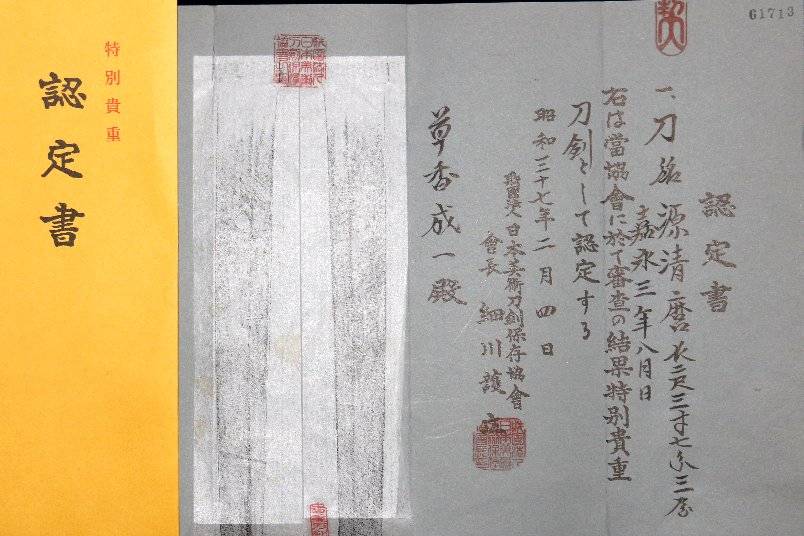 特別貴重
認定書
61713
認定書
一、刀 銘 源清麿 長二尺三寸七分三厘
嘉永三年八月日
右は當協會に於て審査の結果特別貴重
刀劍として認定する
昭和三十七年二月四日
財團法人日本美術刀劍保存協會
會長 細川護立
草香成一殿